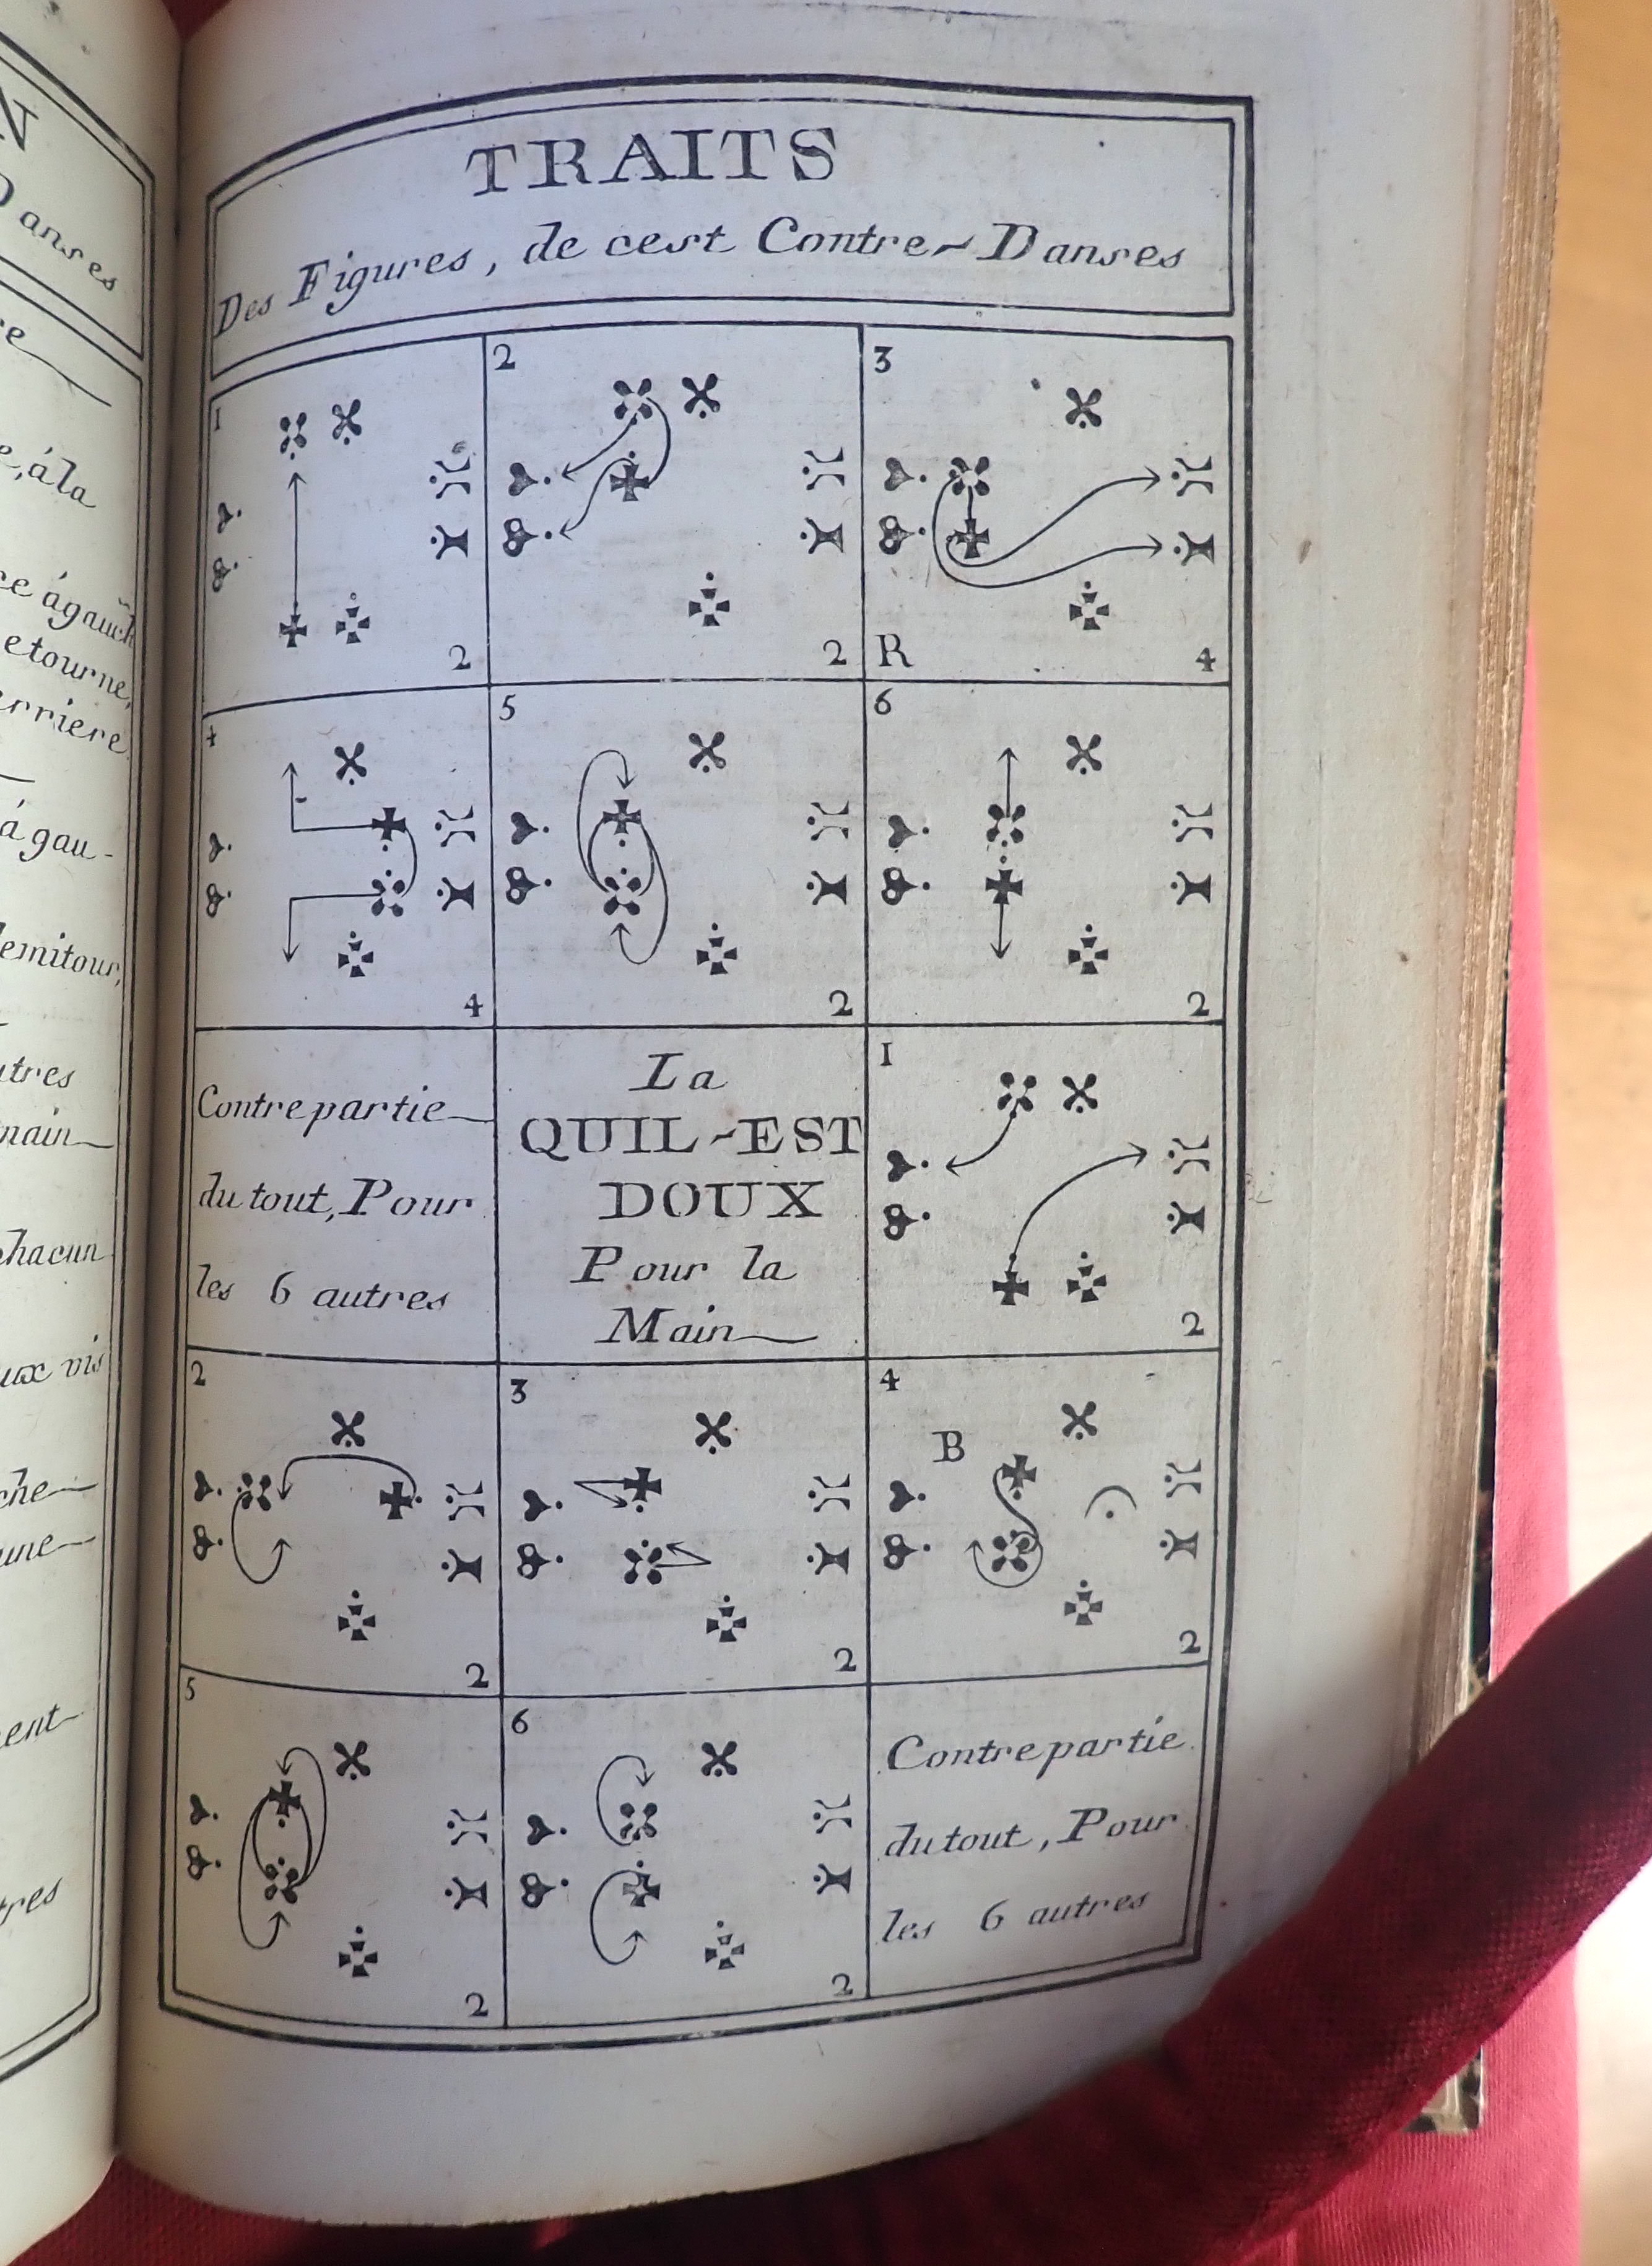 TRAITS
Des Figures, de cest Contre-Danses
1
2
2
2
3
R
4
4
4
5
2
6
2
Contrepartie
du tout, Pour
les 6 autres
La
QUIL-EST
DOUX
Pour la
Main
1
2
2
2
3
2
4
B
2
5
2
6
2
Contrepartie
du tout, Pour
les 6 autres
N
Danses
re
e, á la
ce á gauch
etourne,
erriere
á gau-
demitour,
utres
main
chacun
ux vis
che
une
ent
tres